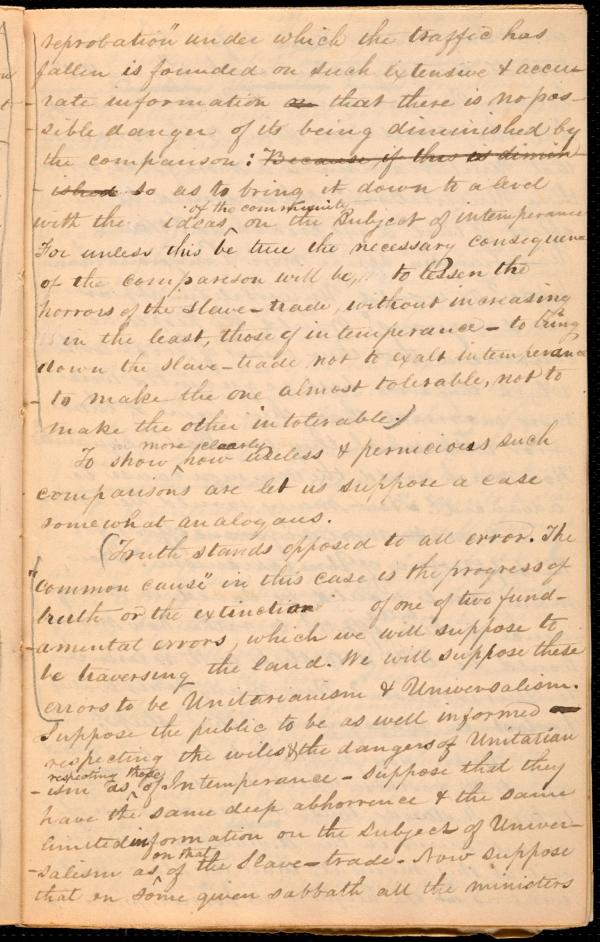 reprobation" under which the traffic has
fallen is founded on such extensive & accu-
rate information as that there is no pos-
sible danger of its being diminished by
the comparison: Because, if this is dimin
-ished so as to bring it down to a level
of the community
with the ideas ^ on the Subject of intemperance
For unless this be true the necessary consequence
of the comparison will be, to lessen the
horrors of the slave-trade, without increasing
in the least, those of intemperance - to bring
down the slave-trade not to exalt intemperance
to make the one almost tolerable, not to
make the other intolerable.)
more clearly
To show ^ how useless & pernicious such
comparisons are let us suppose a case
somewhat analogous.
(Truth stands opposed to all error. The
"common cause" in this case is the progress of
truth or the extinction of one of two fund-
amental errors, which we will suppose to
be traversing the land. We will suppose these
errors to be Unitarianism & Universalism.
Suppose the public to be as well informed
respecting the wiles & the dangers of Unitarian
respecting those
-ism as ^ of Intemperance - suppose that they
have the same deep abhorrence & the same
limited information on the Subject of Univer-
on that
-salism as ^ of the Slave-trade. Now suppose
that on some given sabbath all the ministers